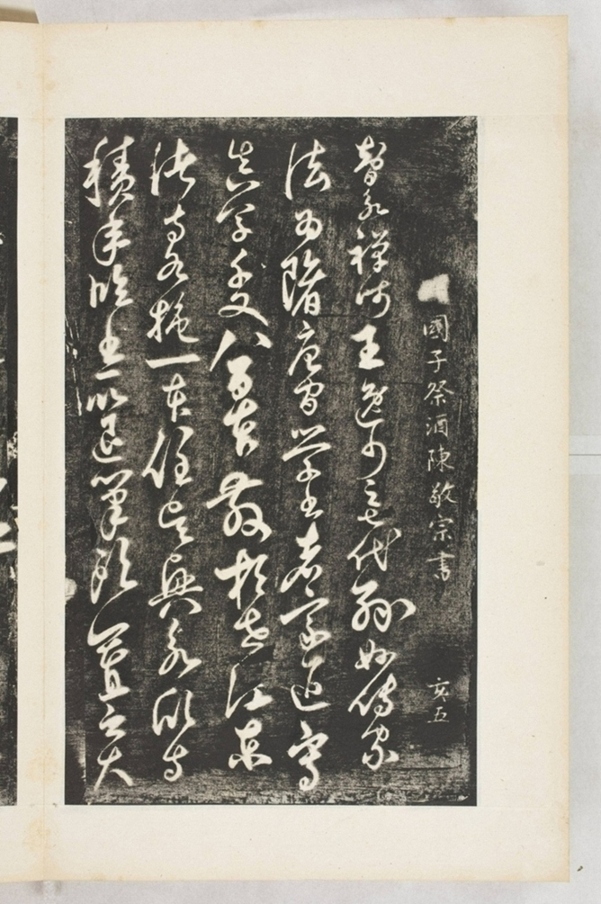 國子祭酒陳敬宗書
亥五
智永禪師王逸少之七代孫妙傳家
法為隋唐間學書者宗匠寫
真草千文八百本散於世江東
諸寺各施一本住吳興永欣寺
積年臨書所退筆頭置之大